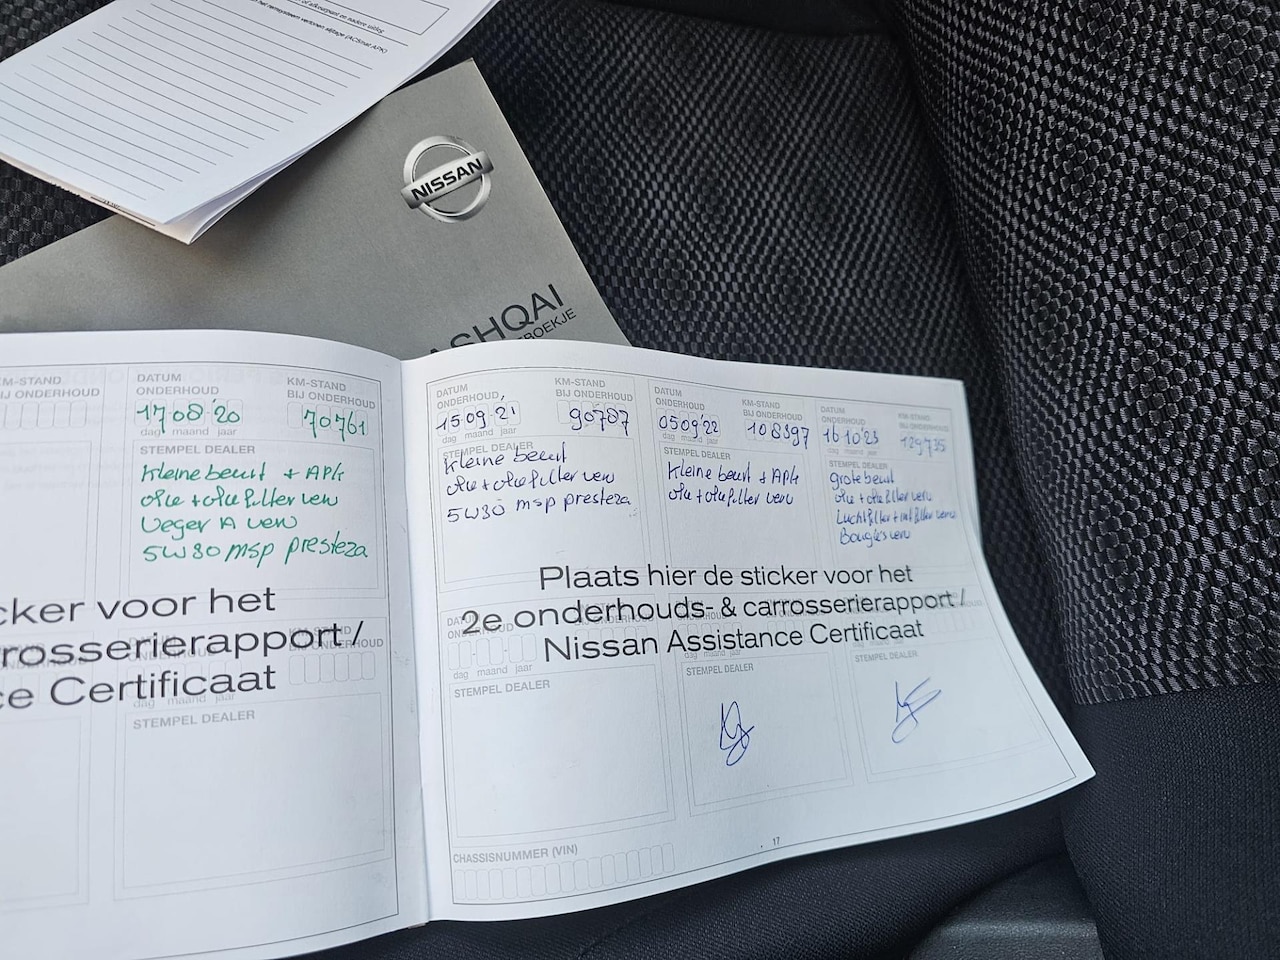 of afkeurpunt en nadere uitleg
het remsysteem vertonen slijtage (ACSmat APK)
NISSAN
ASHQAI
ROEKJE
KM-STAND
BIJ ONDERHOUD
DATUM
ONDERHOUD
KM-STAND
BIJ ONDERHOUD
17 08 '20
70761
dag maand jaar
STEMPEL DEALER
kleine beurt + APK
olie + oliefilter verv
Veger A verv
5W30 msp presteza
cker voor het
rrosserierapport /
ce Certificaat
KM-STAND
BIJ ONDERHOUD
dag maand jaar
STEMPEL DEALER
DATUM
ONDERHOUD
KM-STAND
BIJ ONDERHOUD
15 09 '21
90787
dag maand jaar
STEMPEL DEALER
kleine beurt
olie + oliefilter verv
5W30 msp presteza
DATUM
ONDERHOUD
KM-STAND
BIJ ONDERHOUD
05 09 '22
108397
dag maand jaar
STEMPEL DEALER
kleine beurt + APK
olie + oliefilter verv
DATUM
ONDERHOUD
KM-STAND
BIJ ONDERHOUD
16 10 '23
129735
dag maand jaar
STEMPEL DEALER
grote beurt
olie + oliefilter verv
Luchtfilter + intfilter verv
Bougies verv
Plaats hier de sticker voor het
2e onderhouds- & carrosserierapport /
Nissan Assistance Certificaat
dag maand jaar
STEMPEL DEALER
dag maand jaar
STEMPEL DEALER
STEMPEL DEALER
CHASSISNUMMER (VIN)
17